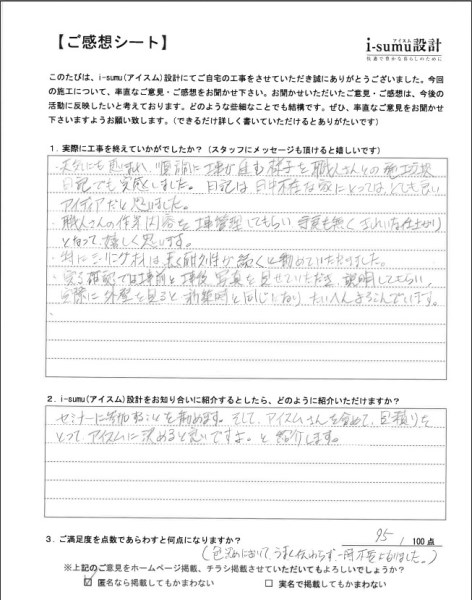 【ご感想シート】
アイスム
i-sumu設計
快適で豊かな暮らしのために
このたびは、i-sumu(アイスム)設計にてご自宅の工事をさせていただき誠にありがとうございました。今回
の施工について、率直なご意見・ご感想をお聞かせ下さい。お聞かせいただいたご意見・ご感想は、今後の
活動に反映したいと考えております。どのような些細なことでも結構です。ぜひ、率直なご意見をお聞かせ
下さいますようお願い致します。（できるだけ詳しく書いていただけるとありがたいです）
1. 実際に工事を終えていかがでしたか？（スタッフにメッセージも頂けると嬉しいです）
・天気にも恵まれ、順調に工事が進む様子を職人さんとの
日記でも完成しました。日記は日中不在な家にとってはとても良い
アイディアだと思いました。
・職人さんの作業内容を工事管理してもらい きれいな仕上がり
となって、嬉しく思います。
・特にシーリング材は長く耐久性が続くと勧めていただきました。
工事前と工事後、写真を見せていただき、説明してもらい、
実際に外壁を見ると新築時と同じになり、たいへんよろこんでいます。
2. i-sumu(アイスム)設計をお知り合いに紹介するとしたら、どのように紹介いただけますか？
セミナーに参加することを勧めます。そして、アイスムさんを含めて、見積りを
とって、アイスムに決めると良いですよ。と紹介します。
3. ご満足度を点数であらわすと何点になりますか？ 95 / 100 点
(色決めにおいて、うまく伝わらず、一時不安もありました。)
※上記のご意見をホームページ掲載、チラシ掲載させていただいてもよろしいでしょうか？
☑ 匿名なら掲載してもかまわない □ 実名で掲載してもかまわない